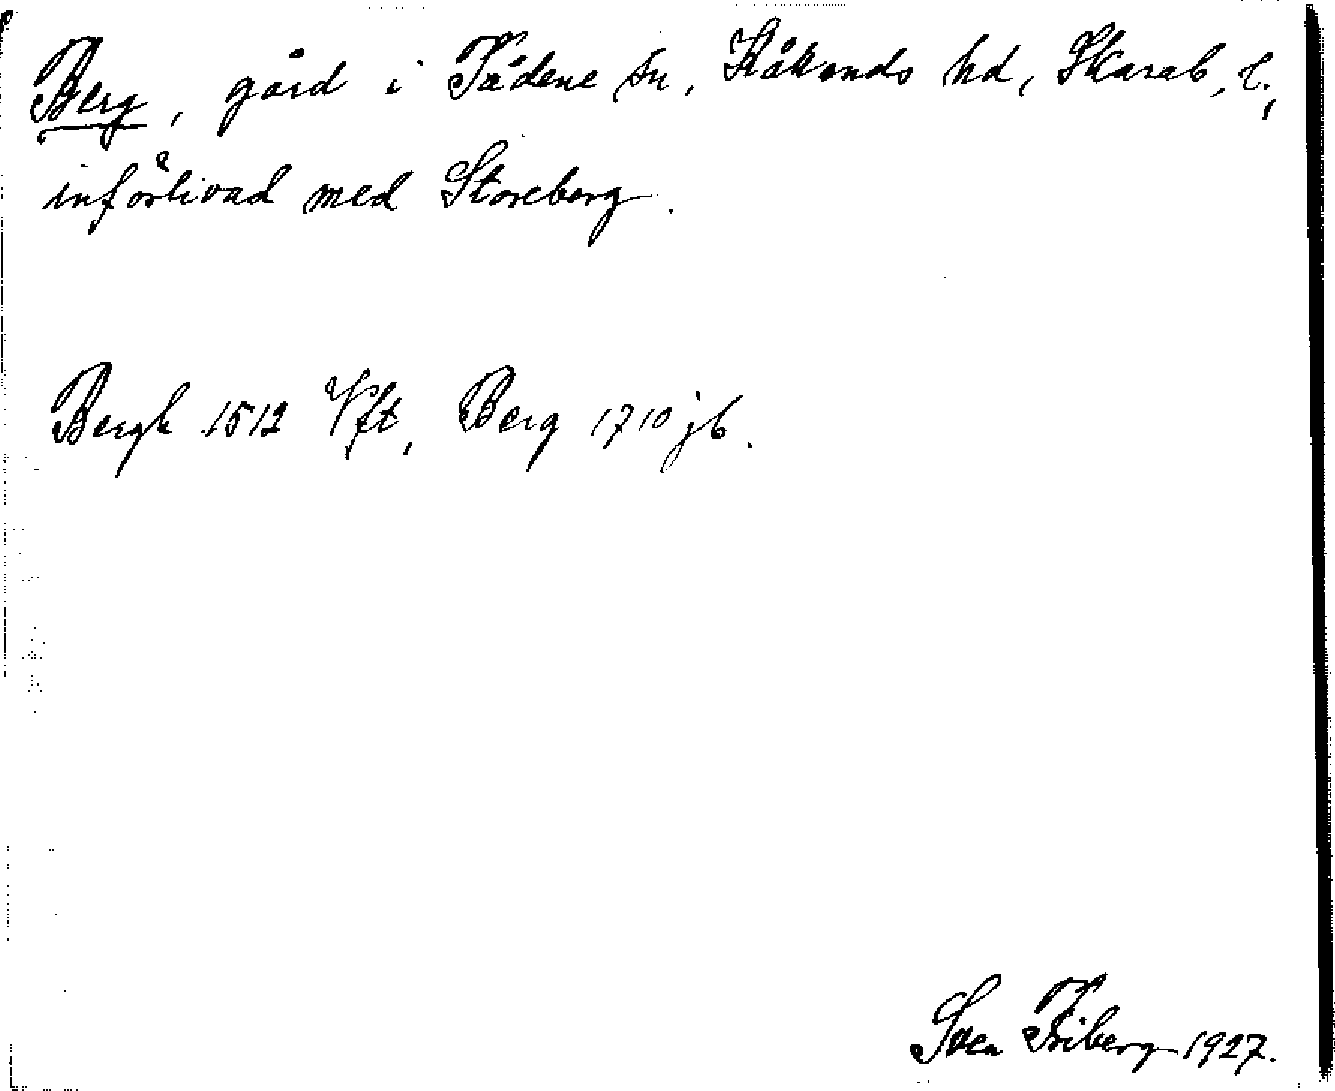 Berg, gård i Tådene sn, Kåkands hd, Skarab. l.,
införlivad med Storeberg.
Bergh 1512 Vft, Berg 1710 jb.
Sven Friberg 1927.